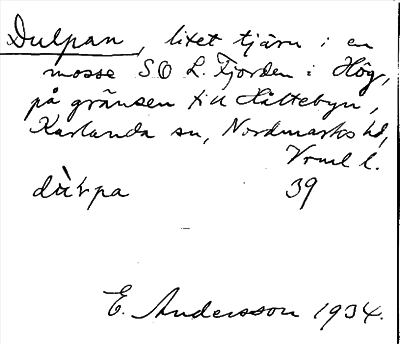 Dulpan, litet tjärn i en
mosse SO L. Tjorden i Hög,
på gränsen till Hältebyn,
Karlanda sn, Nordmarks hd,
Vrml l.
dùɽpa 39
E. Andersson 1934.